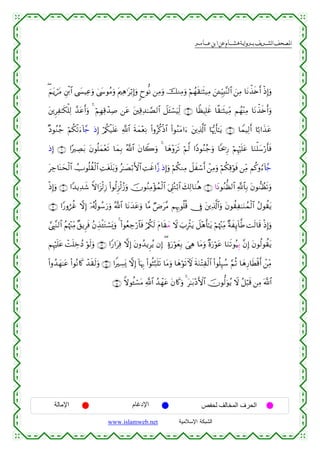 المصحف الشريف برواية هشام عن ابن عامر
وَإِذْ أَخَذْنَا مِنَ ٱلنَّبِيِّـۧنَ مِيثَٰقَهُمْ وَمِنكَ وَمِن نُّوحٍ وَإِبْرَٰهِيمَ وَمُوسَىٰ وَعِيسَى ٱبْنِ مَرْيَمَ
وَأَخَذْنَا مِنْهُم مِّيثَٰقًا غَلِيظًا ۝٧ لِّيَسْـَٔلَ ٱلصَّٰدِقِينَ عَن صِدْقِهِمْ ۚ وَأَعَدَّ لِلْكَٰفِرِينَ
عَذَابًا أَلِيمًا ۝٨ يَٰٓأَيُّهَا ٱلَّذِينَ ءَامَنُوا۟ ٱذْكُرُوا۟ نِعْمَةَ ٱللَّهِ عَلَيْكُمْ إِذ جَّآءَتْكُمْ جُنُودٌ
فَأَرْسَلْنَا عَلَيْهِمْ رِيحًا وَجُنُودًا لَّمْ تَرَوْهَا ۚ وَكَانَ ٱللَّهُ بِمَا تَعْمَلُونَ بَصِيرًا ۝٩ إِذ
جَّآءُوكُم مِّن فَوْقِكُمْ وَمِنْ أَسْفَلَ مِنكُمْ وَإِذ زَّاغَتِ ٱلْأَبْصَٰرُ وَبَلَغَتِ ٱلْقُلُوبُ ٱلْحَنَاجِرَ
وَتَظُنُّونَ بِٱللَّهِ ٱلظُّنُونَا۠ ۝١٠ هُنَالِكَ ٱبْتُلِىَ ٱلْمُؤْمِنُونَ وَزُلْزِلُوا۟ زِلْزَالًا شَدِيدًا ۝١١ وَإِذْ
يَقُولُ ٱلْمُنَٰفِقُونَ وَٱلَّذِينَ فِى قُلُوبِهِم مَّرَضٌ مَّا وَعَدَنَا ٱللَّهُ وَرَسُولُهُۥٓ إِلَّا غُرُورًا ۝١٢
وَإِذْ قَالَت طَّآئِفَةٌ مِّنْهُمْ يَٰٓأَهْلَ يَثْرِبَ لَا مَقَامَ لَكُمْ فَٱرْجِعُوا۟ ۚ وَيَسْتَـْٔذِنُ فَرِيقٌ مِّنْهُمُ ٱلنَّبِىَّ
يَقُولُونَ إِنَّ بِيُوتَنَا عَوْرَةٌ وَمَا هِىَ بِعَوْرَةٍ ۖ إِن يُرِيدُونَ إِلَّا فِرَارًا ۝١٣ وَلَوْ دُخِلَتْ عَلَيْهِم
مِّنْ أَقْطَارِهَا ثُمَّ سُئِلُوا۟ ٱلْفِتْنَةَ لَءَاتَوْهَا وَمَا تَلَبَّثُوا۟ بِهَآ إِلَّا يَسِيرًا ۝١٤ وَلَقَدْ كَانُوا۟ عَٰهَدُوا۟
ٱللَّهَ مِن قَبْلُ لَا يُوَلُّونَ ٱلْأَدْبَٰرَ ۚ وَكَانَ عَهْدُ ٱللَّهِ مَسْـُٔولًا ۝١٥
الحرف المخالف لحفص الإدغام الإمالة
الشبكة الإسلامية www.islamweb.net